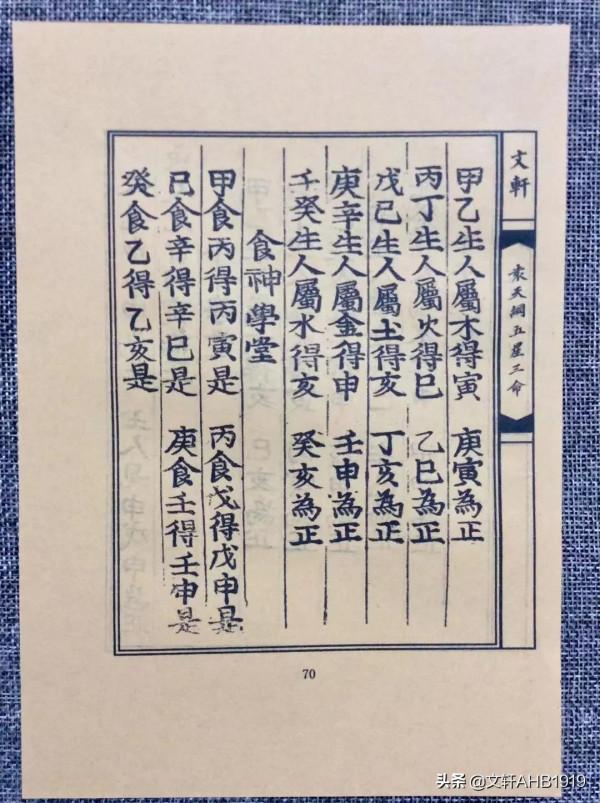 文軒
袁天綱五星三命
甲乙生人屬木得寅 庚寅為正
丙丁生人屬火得巳 乙巳為正
戊己生人屬土得亥 丁亥為正
庚辛生人屬金得申 壬申為正
壬癸生人屬水得亥 癸亥為正
食神學堂
甲食丙得丙寅是 丙食戊得戊申是
己食辛得辛巳是 庚食壬得壬申是
癸食乙得乙亥是
70
头条 @文轩AHB1919